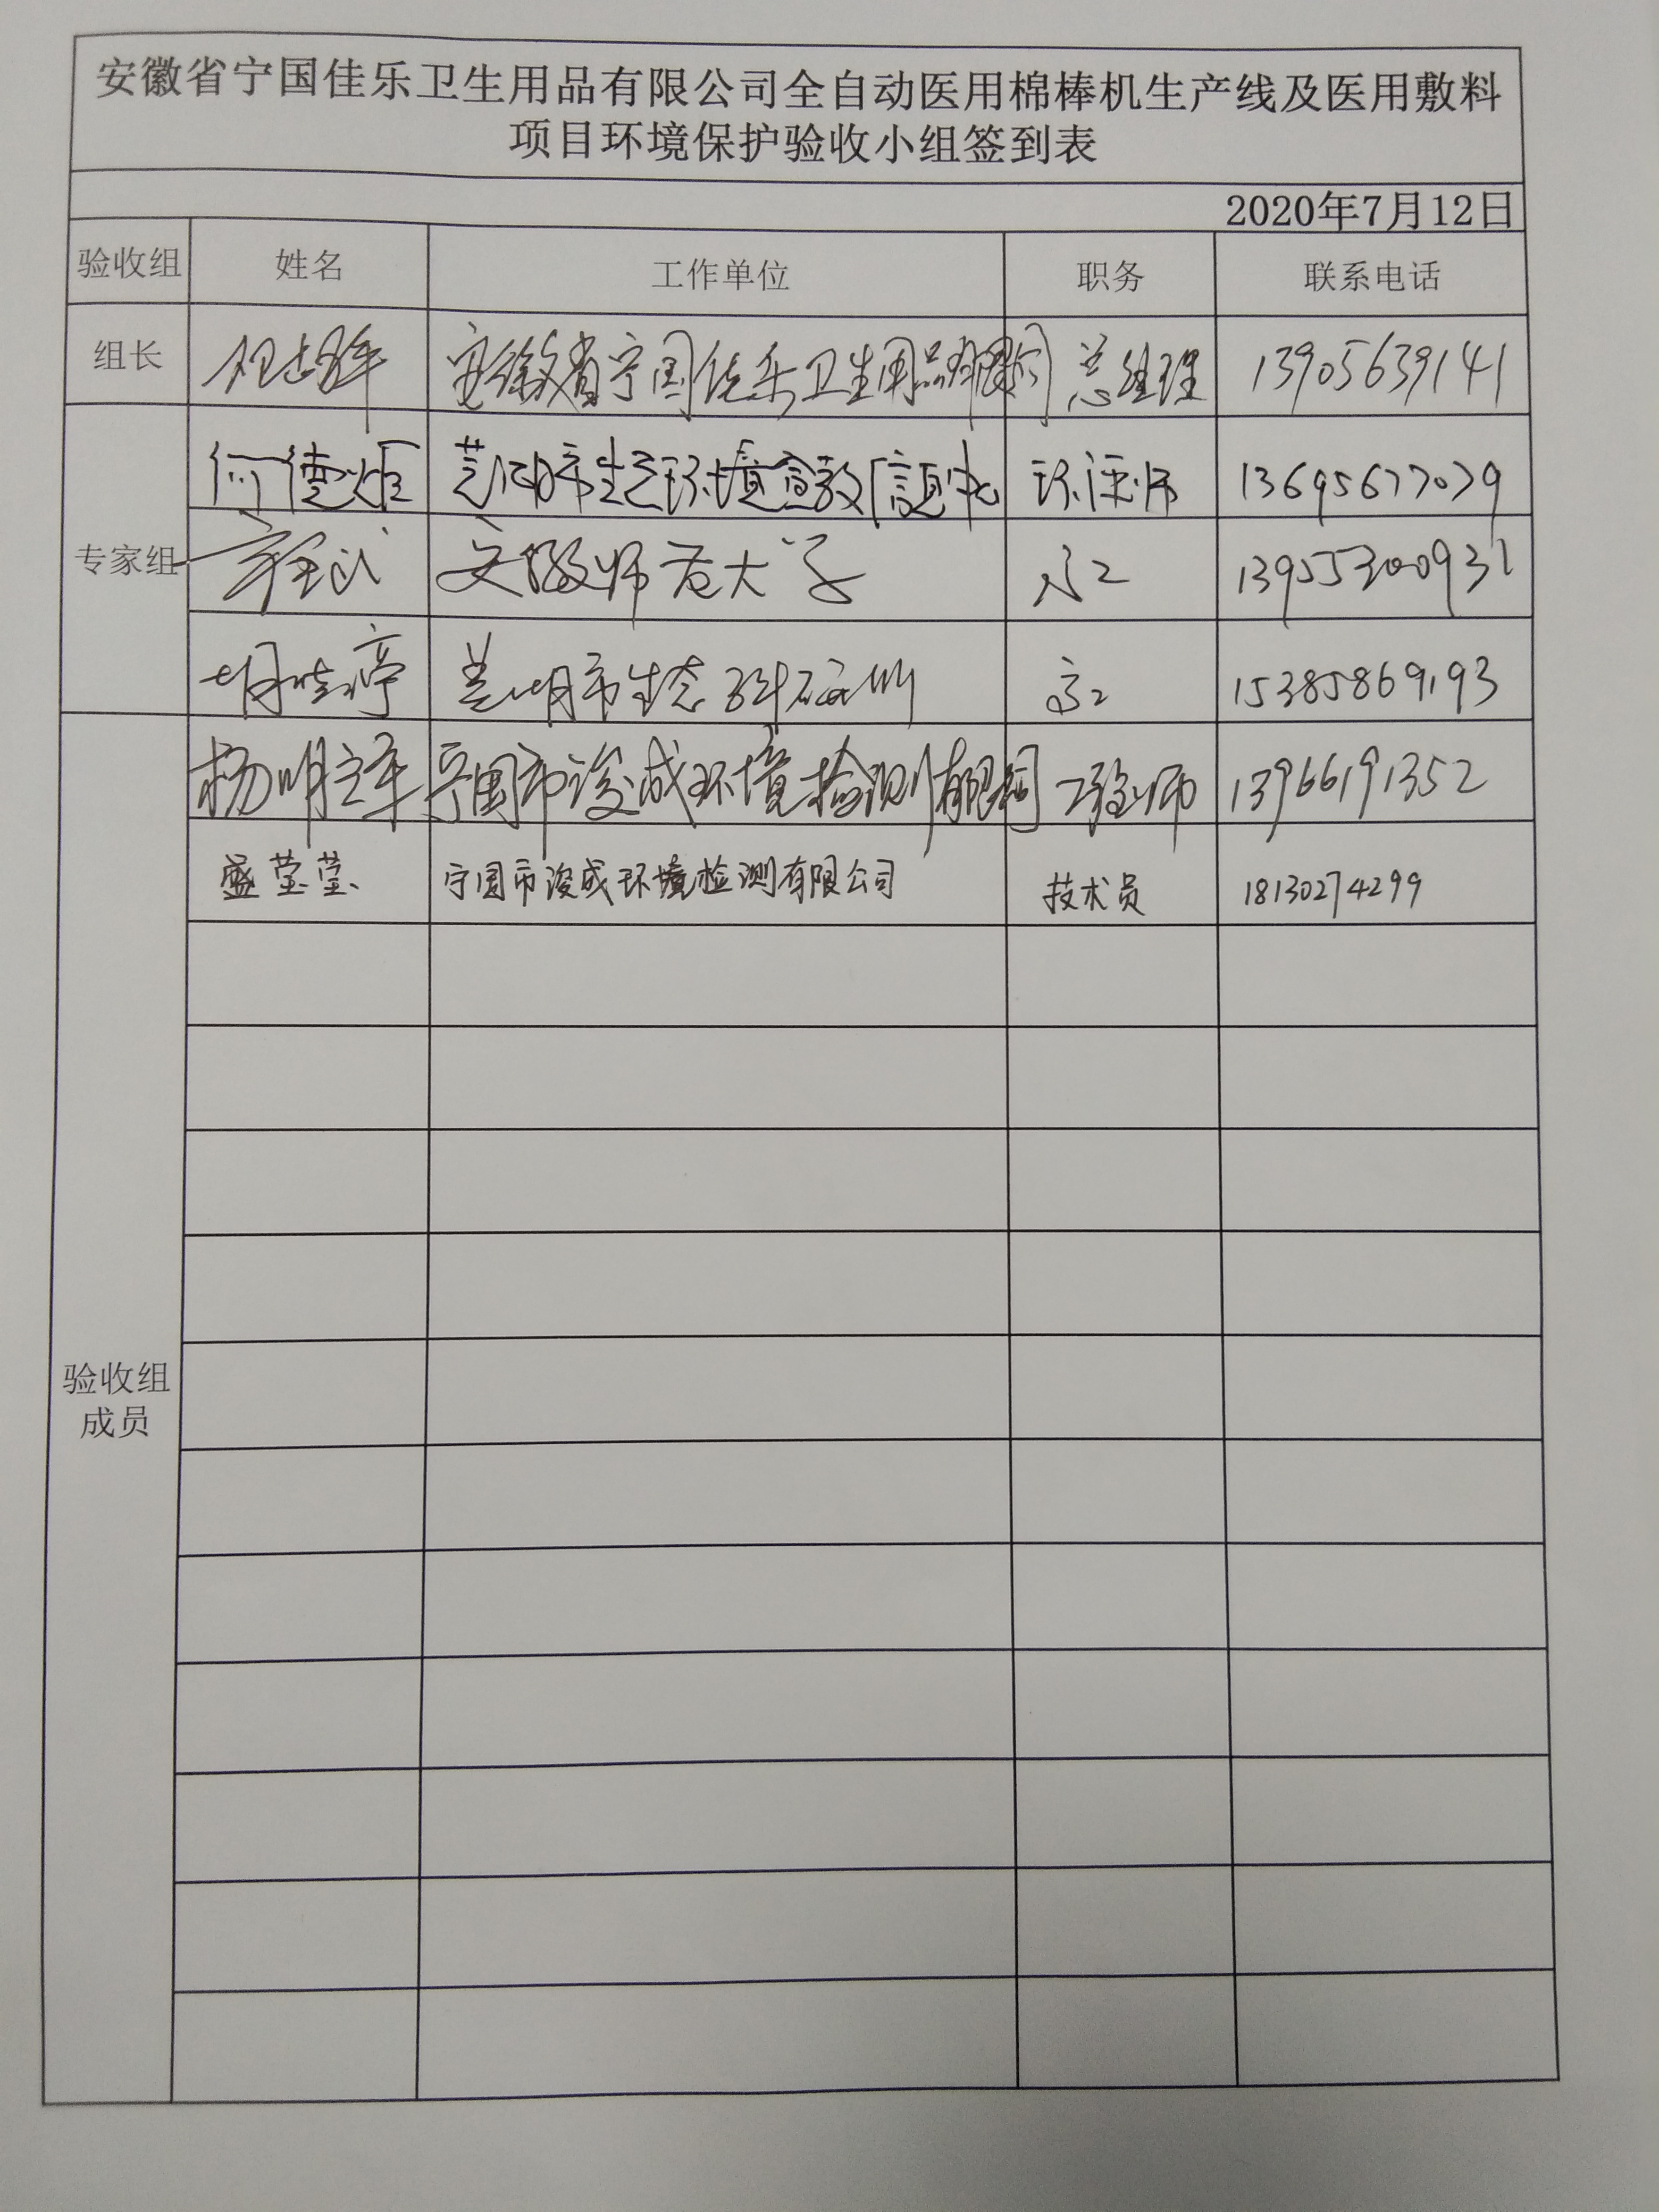 安徽省宁国佳乐卫生用品有限公司全自动医用棉棒机生产线及医用敷料
项目环境保护验收小组签到表
2020年7月12日
验收组 姓名 工作单位 职务 联系电话
组长 安徽省宁国佳乐卫生用品有限公司 总经理 13905639141
专家组
何德炬 芜湖市生态环境宣教信息中心 环境 13695677079
安徽师范大学 高工 13955300931
胡婷 芜湖市生态 高工 15385869193
杨明军 宁国市浚成环境检测有限公司 工程师 13966191352
盛莹莹 宁国市浚成环境检测有限公司 技术员 18130274299
验收组
成员